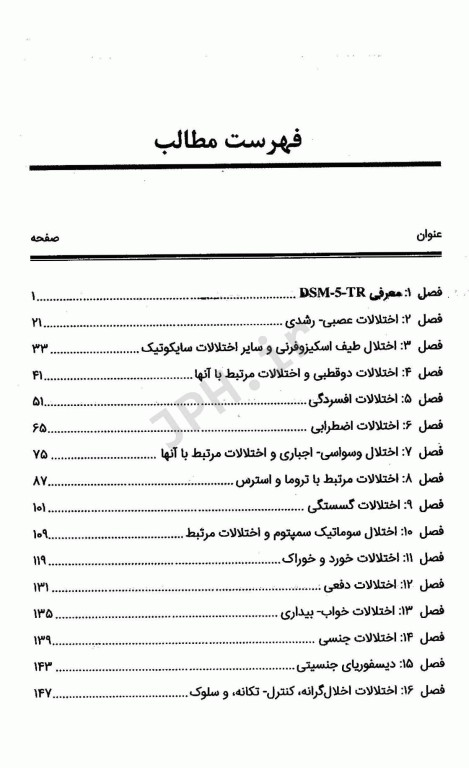 فهرست مطالب
عنوان صفحه
فصل ۱: معرفی DSM-5-TR ........ ۱
فصل ۲: اختلالات عصبی- رشدی ........ ۲۱
فصل ۳: اختلال طیف اسکیزوفرنی و سایر اختلالات سایکوتیک ........ ۳۳
فصل ۴: اختلالات دوقطبی و اختلالات مرتبط با آنها ........ ۴۱
فصل ۵: اختلالات افسردگی ........ ۵۱
فصل ۶: اختلالات اضطرابی ........ ۶۵
فصل ۷: اختلال وسواسی- اجباری و اختلالات مرتبط با آنها ........ ۷۵
فصل ۸: اختلالات مرتبط با تروما و استرس ........ ۸۷
فصل ۹: اختلالات گسستگی ........ ۱۰۱
فصل ۱۰: اختلال سوماتیک سمپتوم و اختلالات مرتبط ........ ۱۰۹
فصل ۱۱: اختلالات خورد و خوراک ........ ۱۱۹
فصل ۱۲: اختلالات دفعی ........ ۱۳۱
فصل ۱۳: اختلالات خواب- بیداری ........ ۱۳۵
فصل ۱۴: اختلالات جنسی ........ ۱۳۹
فصل ۱۵: دیسفوریای جنسیتی ........ ۱۴۳
فصل ۱۶: اختلالات اخلال‌گرانه، کنترل- تکانه، و سلوک ........ ۱۴۷
JPH.ir